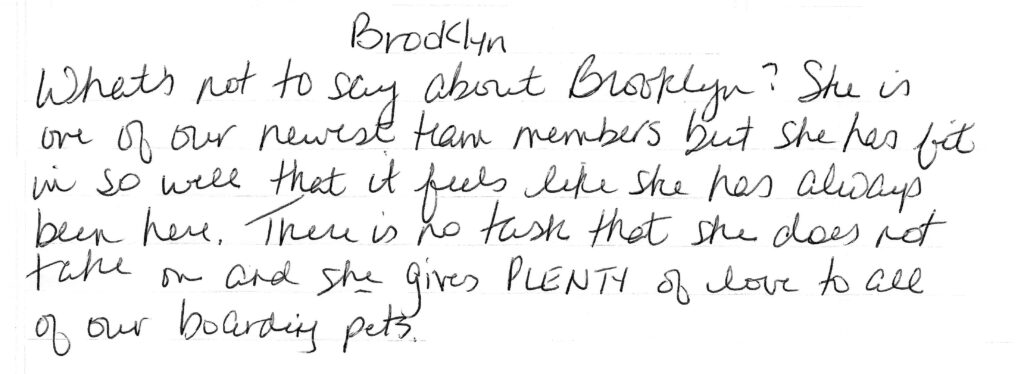 Brooklyn
What's not to say about Brooklyn? She is
one of our newest team members but she has fit
in so well that it feels like she has always
been here. There is no task that she does not
take on and she gives PLENTY of love to all
of our boarding pets.